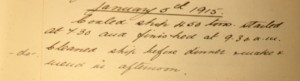 January 5th 1915.
Coaled ship 450 tons. started
at 7.30 and finished at 9.30 a.m.
-do- Cleaned ship before dinner & make &
mend in afternoon.